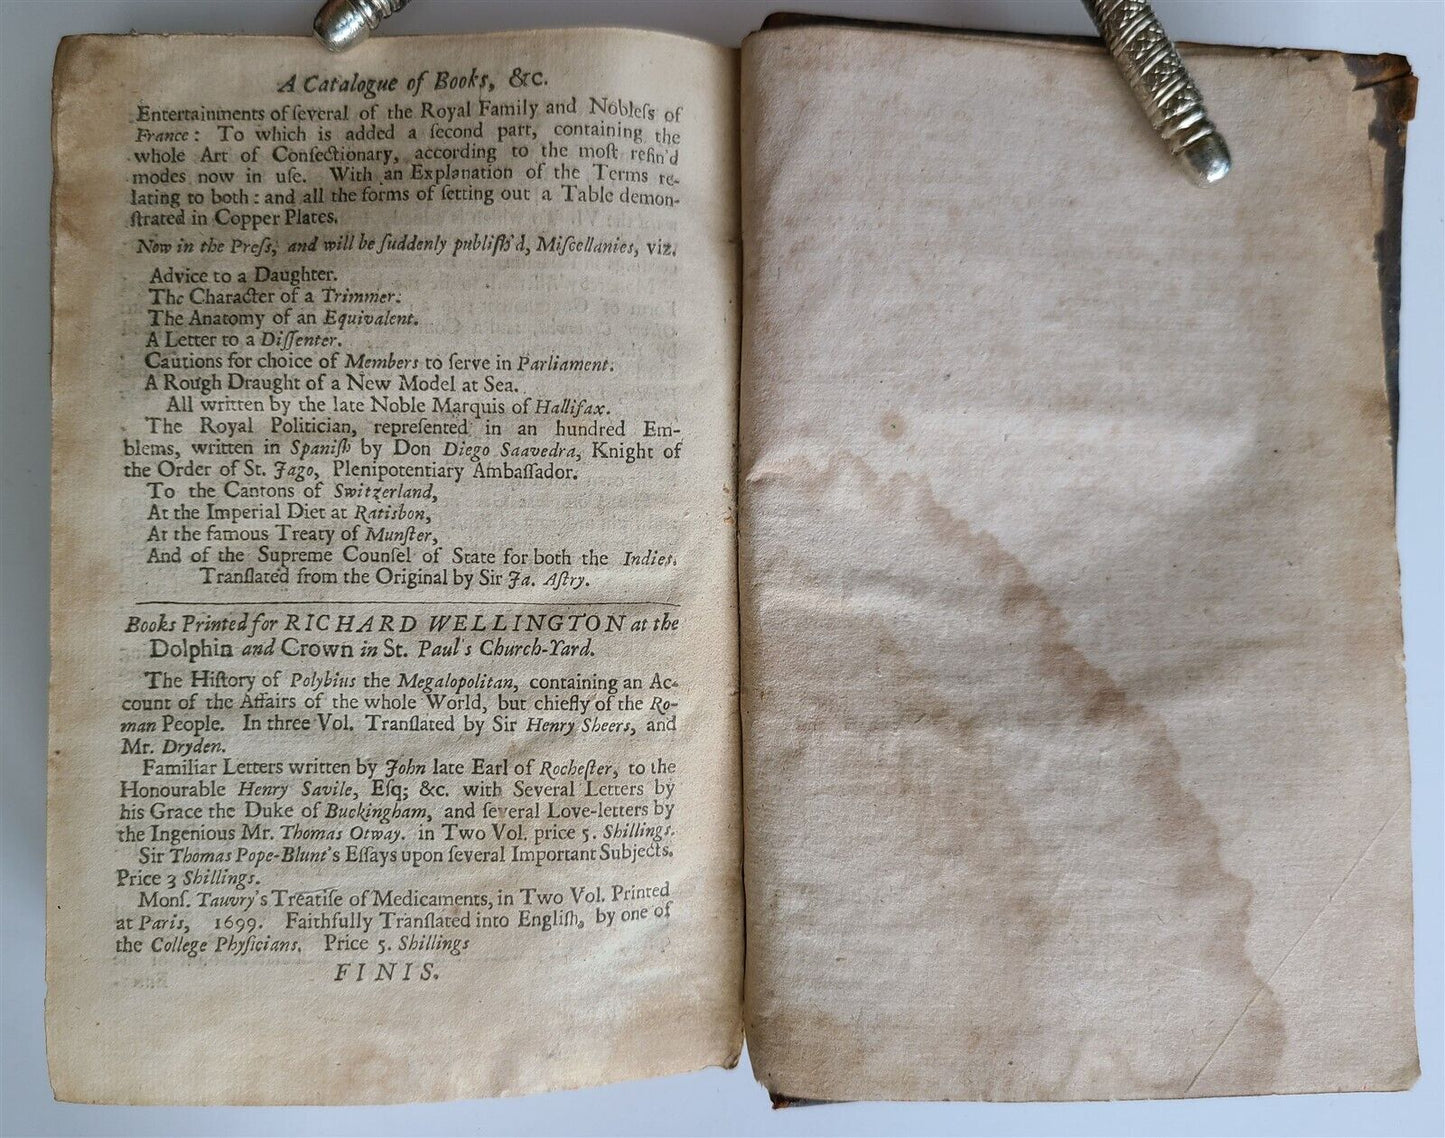 A Catalogue of Books, &c.
Entertainments of ſeveral of the Royal Family and Nobleſs of
France: To which is added a ſecond part, containing the
whole Art of Confectionary, according to the moſt refin'd
modes now in uſe. With an Explanation of the Terms re-
lating to both: and all the forms of ſetting out a Table demon-
ſtrated in Copper Plates.
Now in the Preſs, and will be ſuddenly publiſh'd, Miſcellanies, viz.
Advice to a Daughter.
The Character of a Trimmer.
The Anatomy of an Equivalent.
A Letter to a Diſſenter.
Cautions for choice of Members to ſerve in Parliament.
A Rough Draught of a New Model at Sea.
All written by the late Noble Marquis of Hallifax.
The Royal Politician, repreſented in an hundred Em-
blems, written in Spaniſh by Don Diego Saavedra, Knight of
the Order of St. Jago, Plenipotentiary Ambaſſador.
To the Cantons of Switzerland,
At the Imperial Diet at Ratisbon,
At the famous Treaty of Munſter,
And of the Supreme Counſel of State for both the Indies.
Tranſlated from the Original by Sir Ja. Aſtry.
Books Printed for RICHARD WELLINGTON at the
Dolphin and Crown in St. Paul's Church-Yard.
The Hiſtory of Polybius the Megalopolitan, containing an Ac-
count of the Affairs of the whole World, but chiefly of the Ro-
man People. In three Vol. Tranſlated by Sir Henry Sheers, and
Mr. Dryden.
Familiar Letters written by John late Earl of Rocheſter, to the
Honourable Henry Savile, Eſq; &c. with Several Letters by
his Grace the Duke of Buckingham, and ſeveral Love-letters by
the Ingenious Mr. Thomas Otway. in Two Vol. price 5. Shillings.
Sir Thomas Pope-Blunt's Eſſays upon ſeveral Important Subjects.
Price 3 Shillings.
Monſ. Tauvry's Treatiſe of Medicaments, in Two Vol. Printed
at Paris, 1699. Faithfully Tranſlated into Engliſh, by one of
the College Phyſicians. Price 5. Shillings
FINIS.